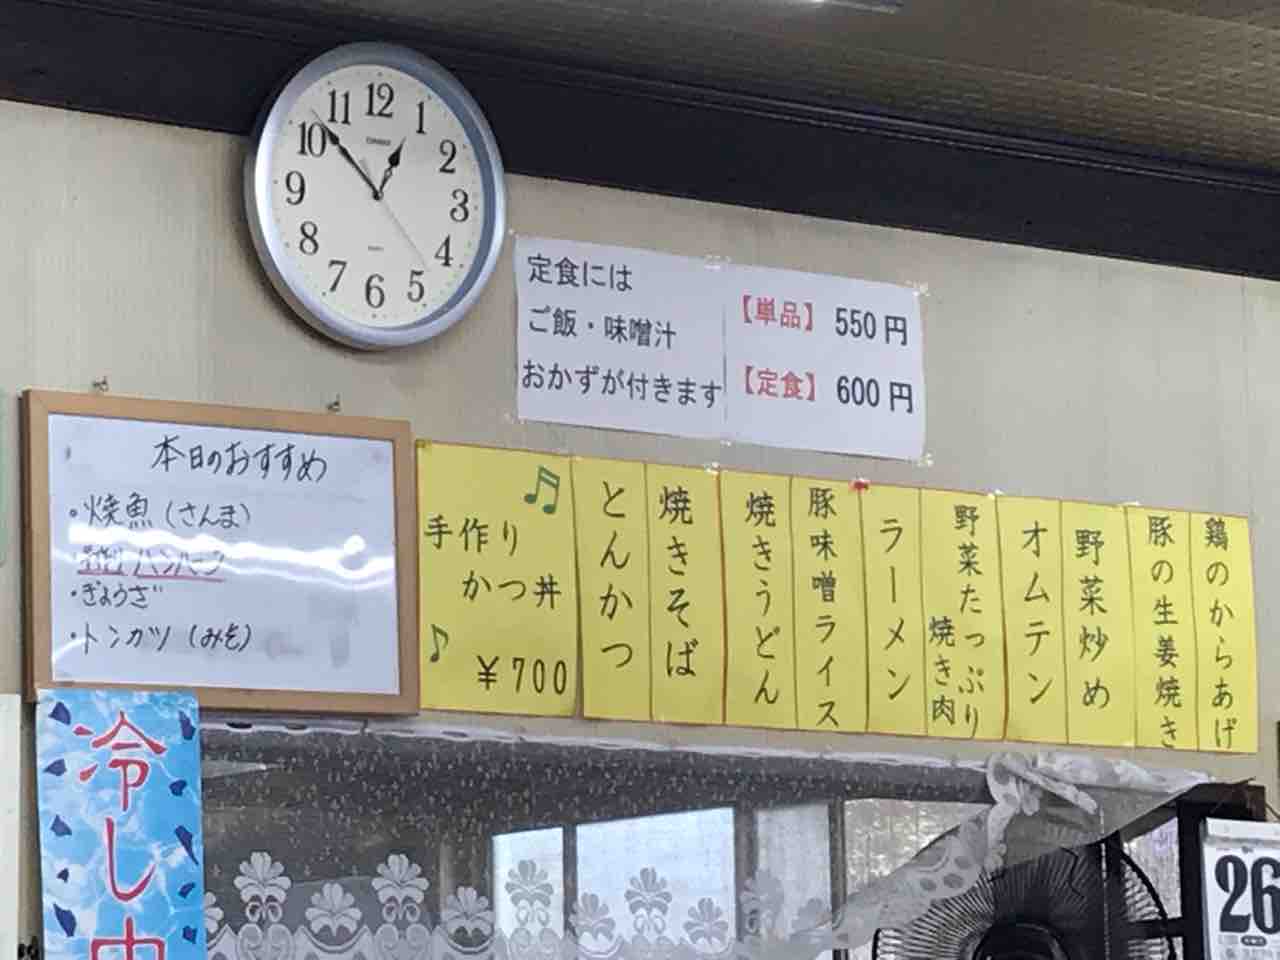 12
1
2
3
4
5
6
7
8
9
10
11
定食には
ご飯・味噌汁
おかずが付きます
【単品】 550円
【定食】 600円
本日のおすすめ
・焼魚(さんま)
手作りハンバーグ
・ぎょうざ
・トンカツ(みそ)
手作り
かつ丼
¥700
とんかつ
焼きそば
焼きうどん
豚味噌ライス
ラーメン
野菜たっぷり
焼き肉
オムテン
野菜炒め
豚の生姜焼き
鶏のからあげ
冷し中
26